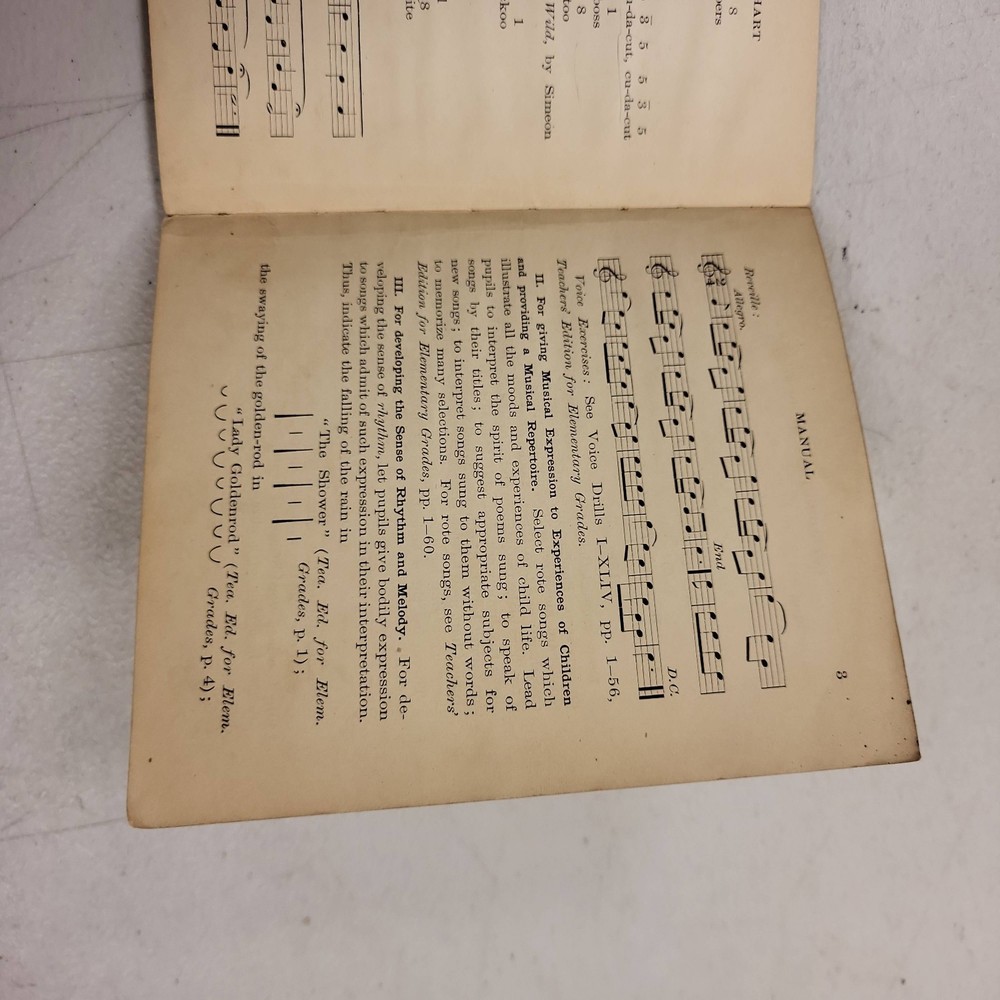 HART
8
pers
8 5 5 3 5
u-da-cut, cu-da-cut
1
8
too
Wild, by Simeon
1
8
MANUAL
3
Reveille:
Allegro.
2
4
End
D.C.
Voice Exercises: See Voice Drills I–XLIV, pp. 1–56,
Teachers' Edition for Elementary Grades.
II. For giving Musical Expression to Experiences of Children
and providing a Musical Repertoire. Select rote songs which
illustrate all the moods and experiences of child life. Lead
pupils to interpret the spirit of poems sung; to speak of
songs by their titles; to suggest appropriate subjects for
new songs; to interpret songs sung to them without words;
to memorize many selections. For rote songs, see Teachers'
Edition for Elementary Grades, pp. 1–60.
III. For developing the Sense of Rhythm and Melody. For de-
veloping the sense of rhythm, let pupils give bodily expression
to songs which admit of such expression in their interpretation.
Thus, indicate the falling of the rain in
"The Shower" (Tea. Ed. for Elem.
Grades, p. 1);
the swaying of the golden-rod in
"Lady Goldenrod" (Tea. Ed. for Elem.
Grades, p. 4);